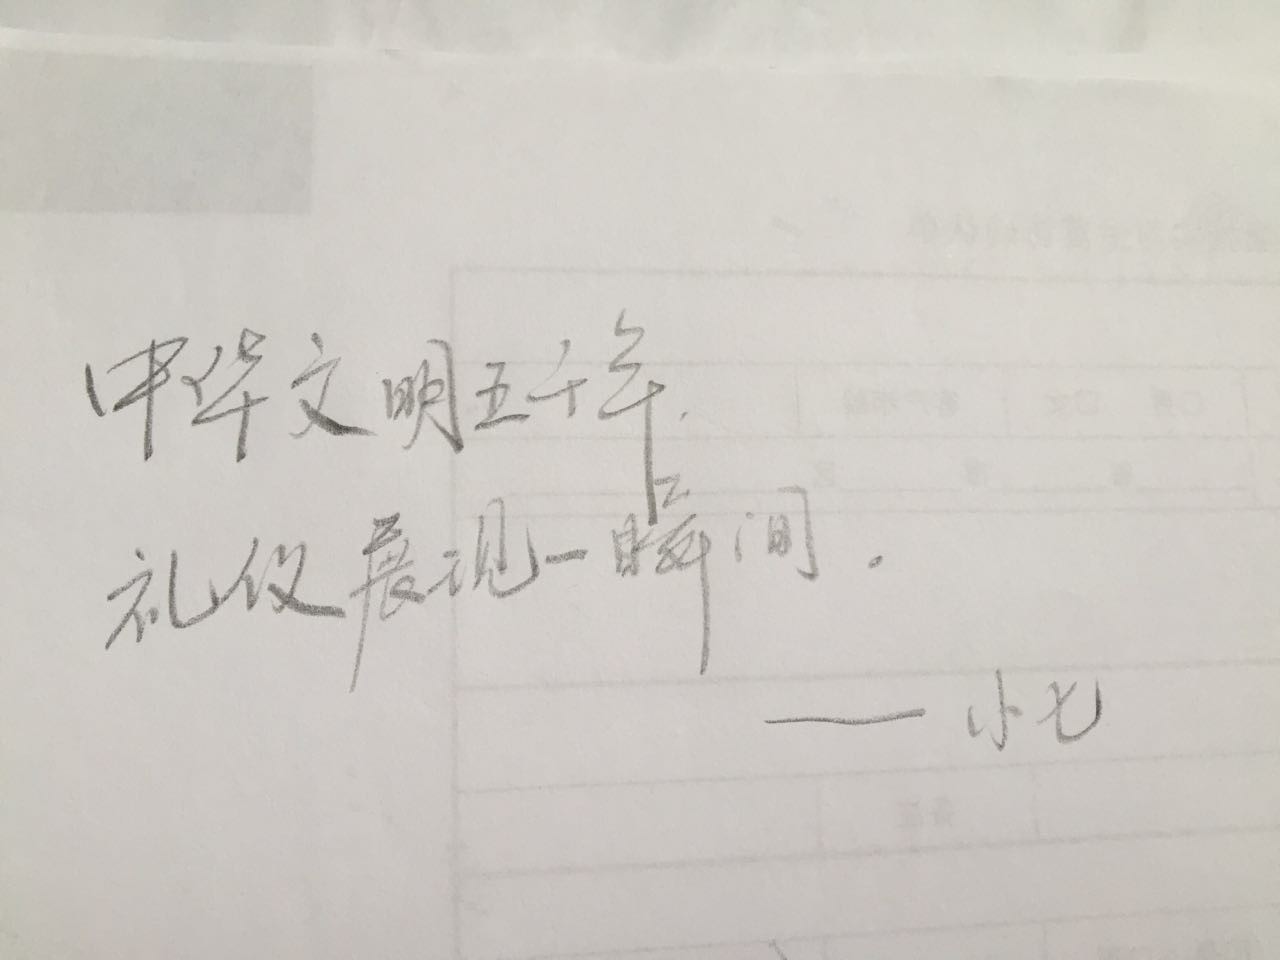 中华文明五千年.
礼仪展现一瞬间.
—— 小七